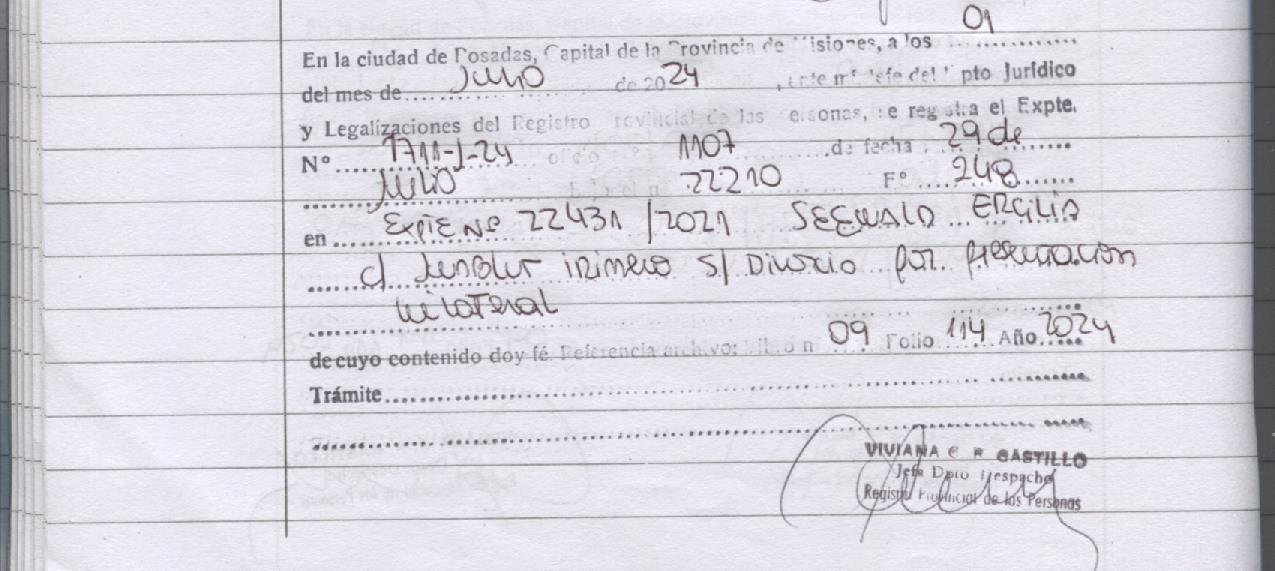 01
En la ciudad de Posadas, Capital de la Provincia de Misiones, a los ..............
del mes de ..... Julio ..... de 2024 , ante mí Jefe del Dpto Jurídico
y Legalizaciones del Registro Provincial de las Personas, se registra el Expte.
Nº ..... 1711-J-24 oficio nº 1107 ..... de fecha ..... 29 de .....
..... Julio ..... 22210 Fº ..... 248 .....
en ..... Expte Nº 22431/2021 SEEWALD ERCILIA
..... c/ ..... s/ Divorcio por Presentación
unilateral
de cuyo contenido doy fé. Referencia archivo: Libro nº 09 Folio 114 Año 2024
Trámite ..............
VIVIANA C R CASTILLO
Jefa Dpto Despacho
Registro Provincial de las Personas